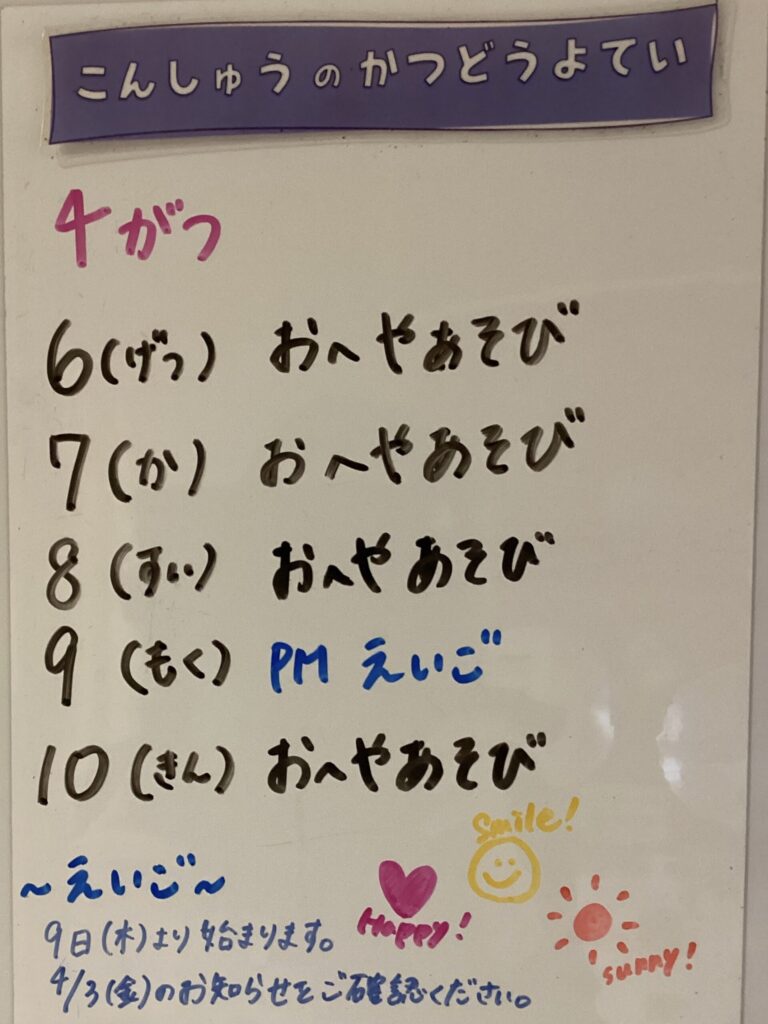 こんしゅうのかつどうよてい
4がつ
6(げつ) おへやあそび
7(か) おへやあそび
8(すい) おへやあそび
9(もく) PM えいご
10(きん) おへやあそび
Smile!
~えいご~
Happy!
9日(木)より始まります。
sunny!
4/3(金)のお知らせをご確認ください。